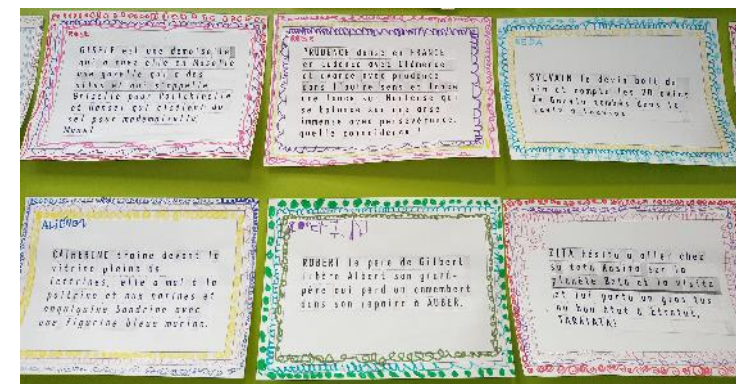 ROSE
GISELE est une demoiselle
qui a avec elle sa
une gazelle qui a des
ailes et qui s'appelle
Brizelle pour
et Basset qui
sel pour mademoiselle
ROSE
PRUDENCE danse en FRANCE
en cadence avec Clémence
et avance avec prudence
dans l'autre sens et lance
une lance sur Hortense qui
se balance sur une anse
immense avec persévérance,
quelle coïncidence !
REDA
SYLVAIN le devin boit du
vin et compte les 20 
de tombés dans le
ALIÉNOR
CATHERINE traine devant la
vitrine pleine de
terrines, elle a mal à la
poitrine et aux narines et
Sandrine avec
une figurine bleue marine.
ROBERT le père de Gilbert
libère Albert son grand-
père qui perd un camembert
dans son repaire à AUBER.
ZITA hésita à aller chez
sa tata Rosita sur la
planète Zeta et la visita
et lui porta un gros tas
en bon état à Étretat,
TARATATA!